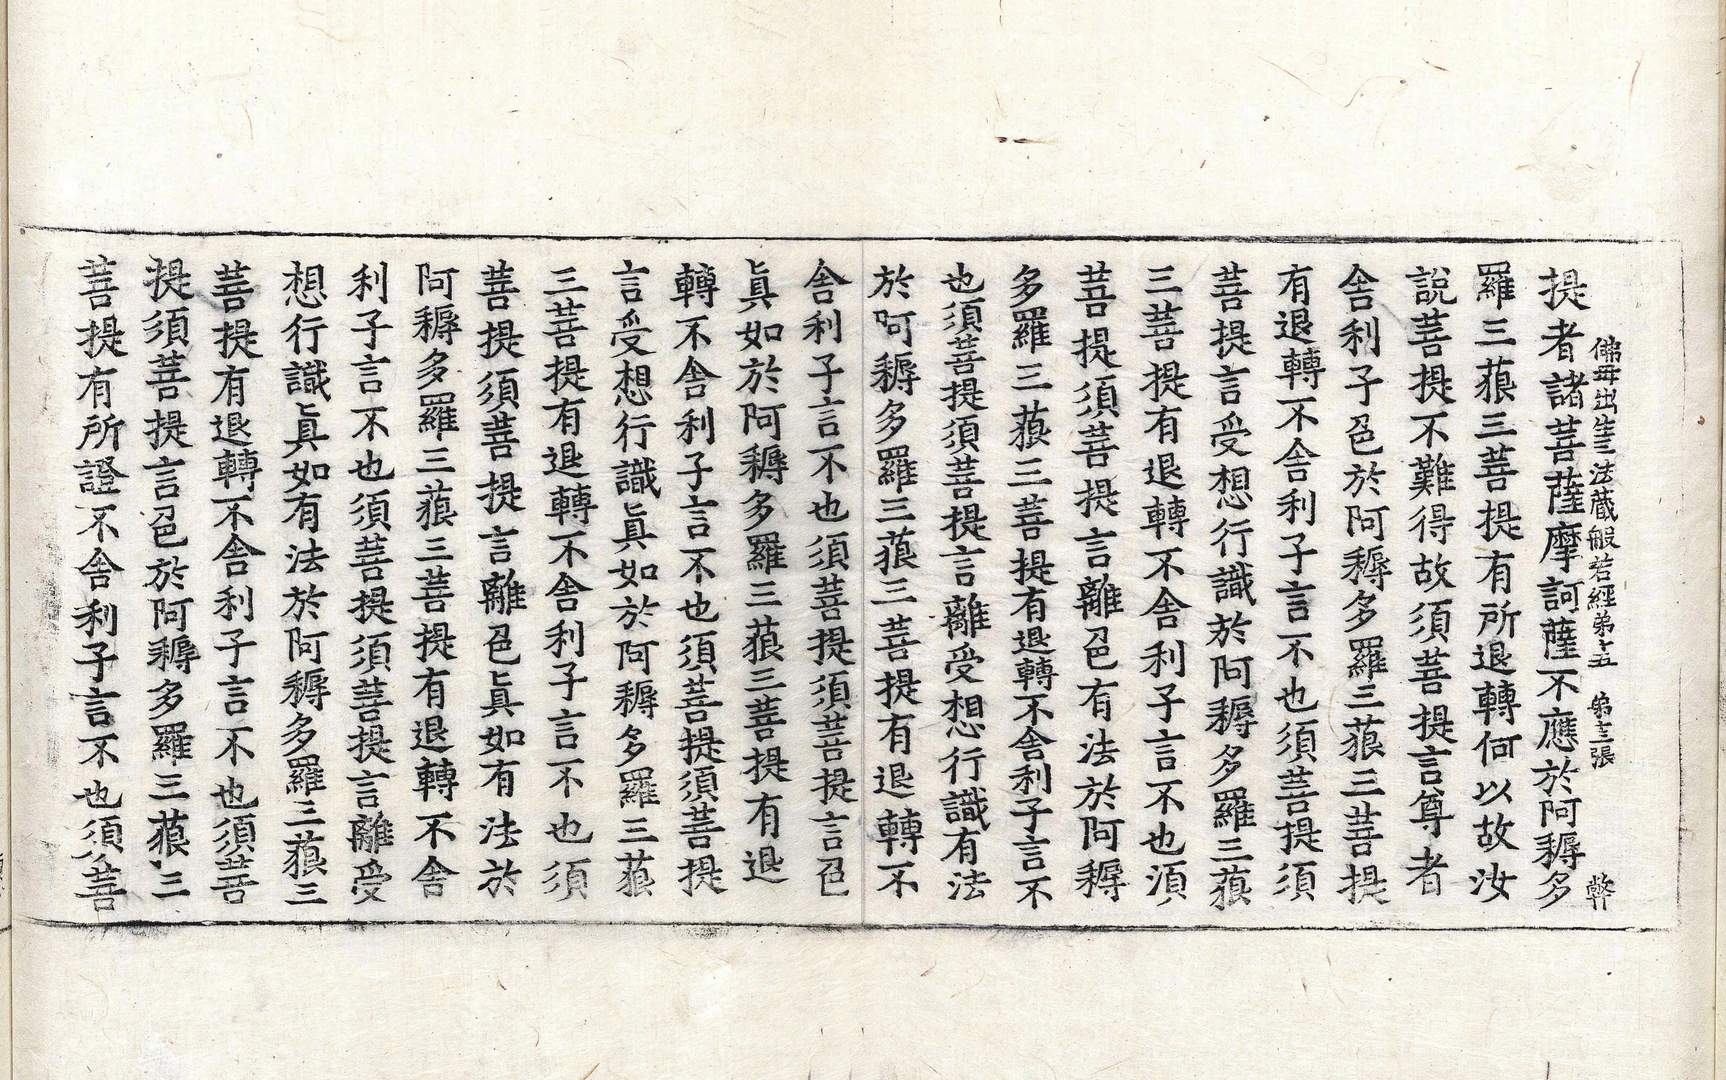 佛母出生三法藏般若經第十五 第十三張 弊
提者諸菩薩摩訶薩不應於阿耨多
羅三藐三菩提有所退轉何以故汝
說菩提不難得故須菩提言尊者
舍利子色於阿耨多羅三藐三菩提
有退轉不舍利子言不也須菩提須
菩提言受想行識於阿耨多羅三藐
三菩提有退轉不舍利子言不也須
菩提須菩提言離色有法於阿耨
多羅三藐三菩提有退轉不舍利子言不
也須菩提須菩提言離受想行識有法
於阿耨多羅三藐三菩提有退轉不
舍利子言不也須菩提須菩提言色
眞如於阿耨多羅三藐三菩提有退
轉不舍利子言不也須菩提須菩提
言受想行識眞如於阿耨多羅三藐
三菩提有退轉不舍利子言不也須
菩提須菩提言離色眞如有法於
阿耨多羅三藐三菩提有退轉不舍
利子言不也須菩提須菩提言離受
想行識眞如有法於阿耨多羅三藐三
菩提有退轉不舍利子言不也須菩
提須菩提言色於阿耨多羅三藐三
菩提有所證不舍利子言不也須菩